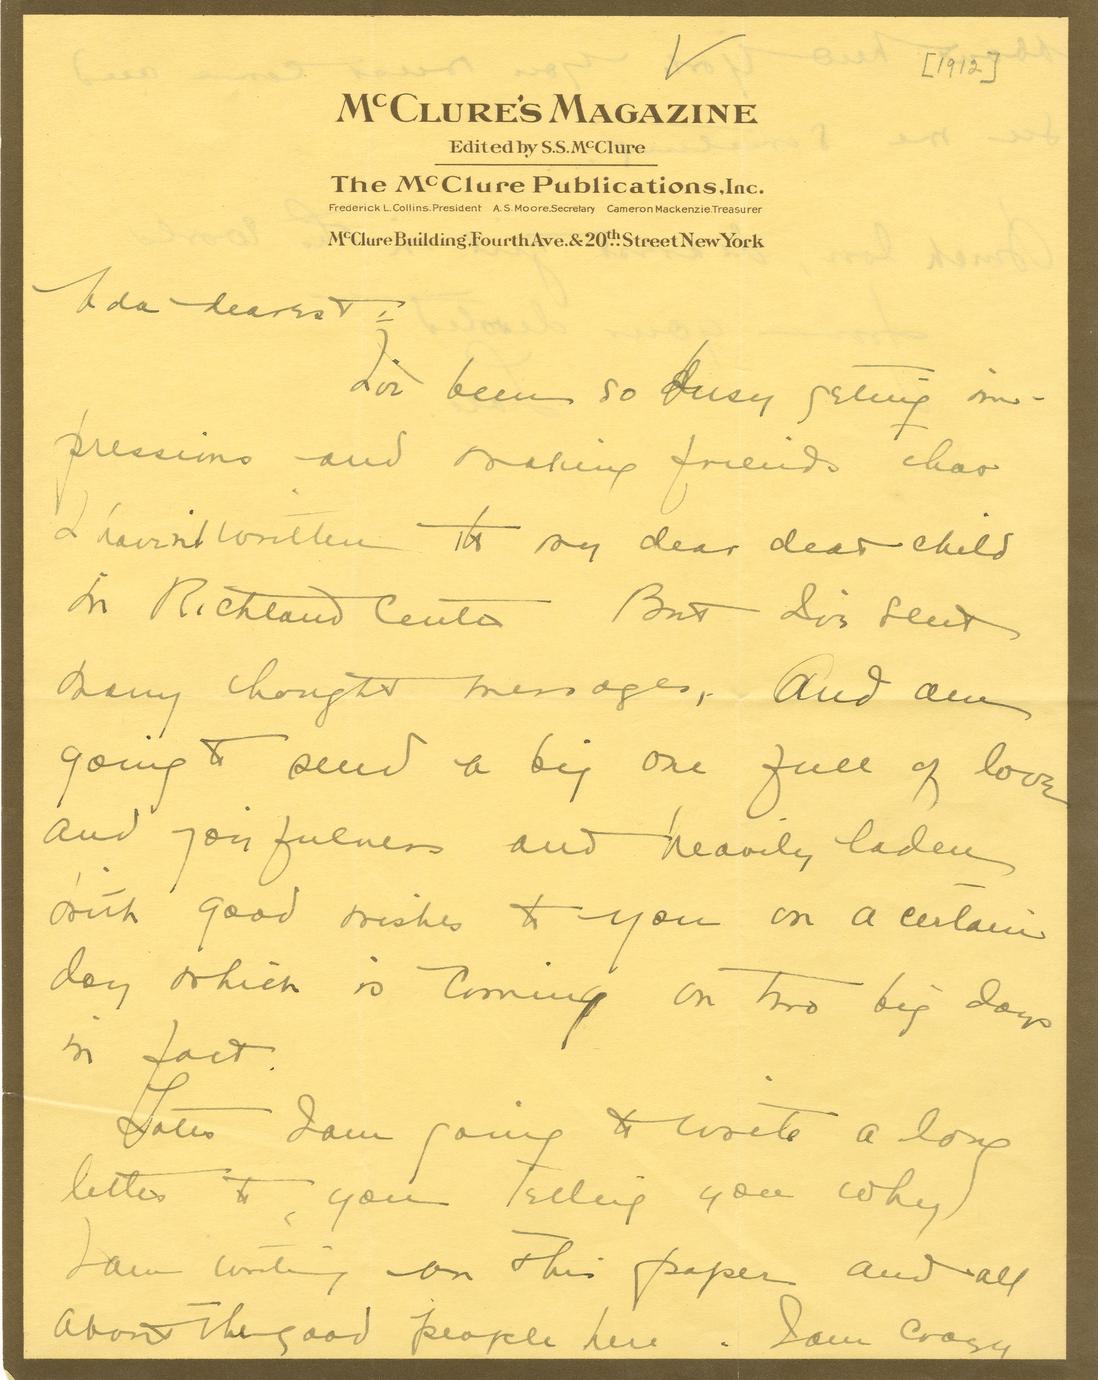 [1912]
McClure's Magazine
Edited by S.S. McClure
The McClure Publications, Inc.
Frederick L. Collins. President A. S. Moore. Secretary Cameron Mackenzie. Treasurer
McClure Building. Fourth Ave. & 20th Street New York
Ada dearest :-
I've been so busy getting im-
pressions and making friends that
I haven't written to my dear dear child
in Richland Center But I've sent
many thought messages, And am
going to send a big one full of love
and joyfulness and heavily laden
with good wishes to you on a certain
day which is coming on two big days
in fact.
Later I am going to write a long
letter to you telling you why
I am writing on this paper and all
about the good people here. I am crazy